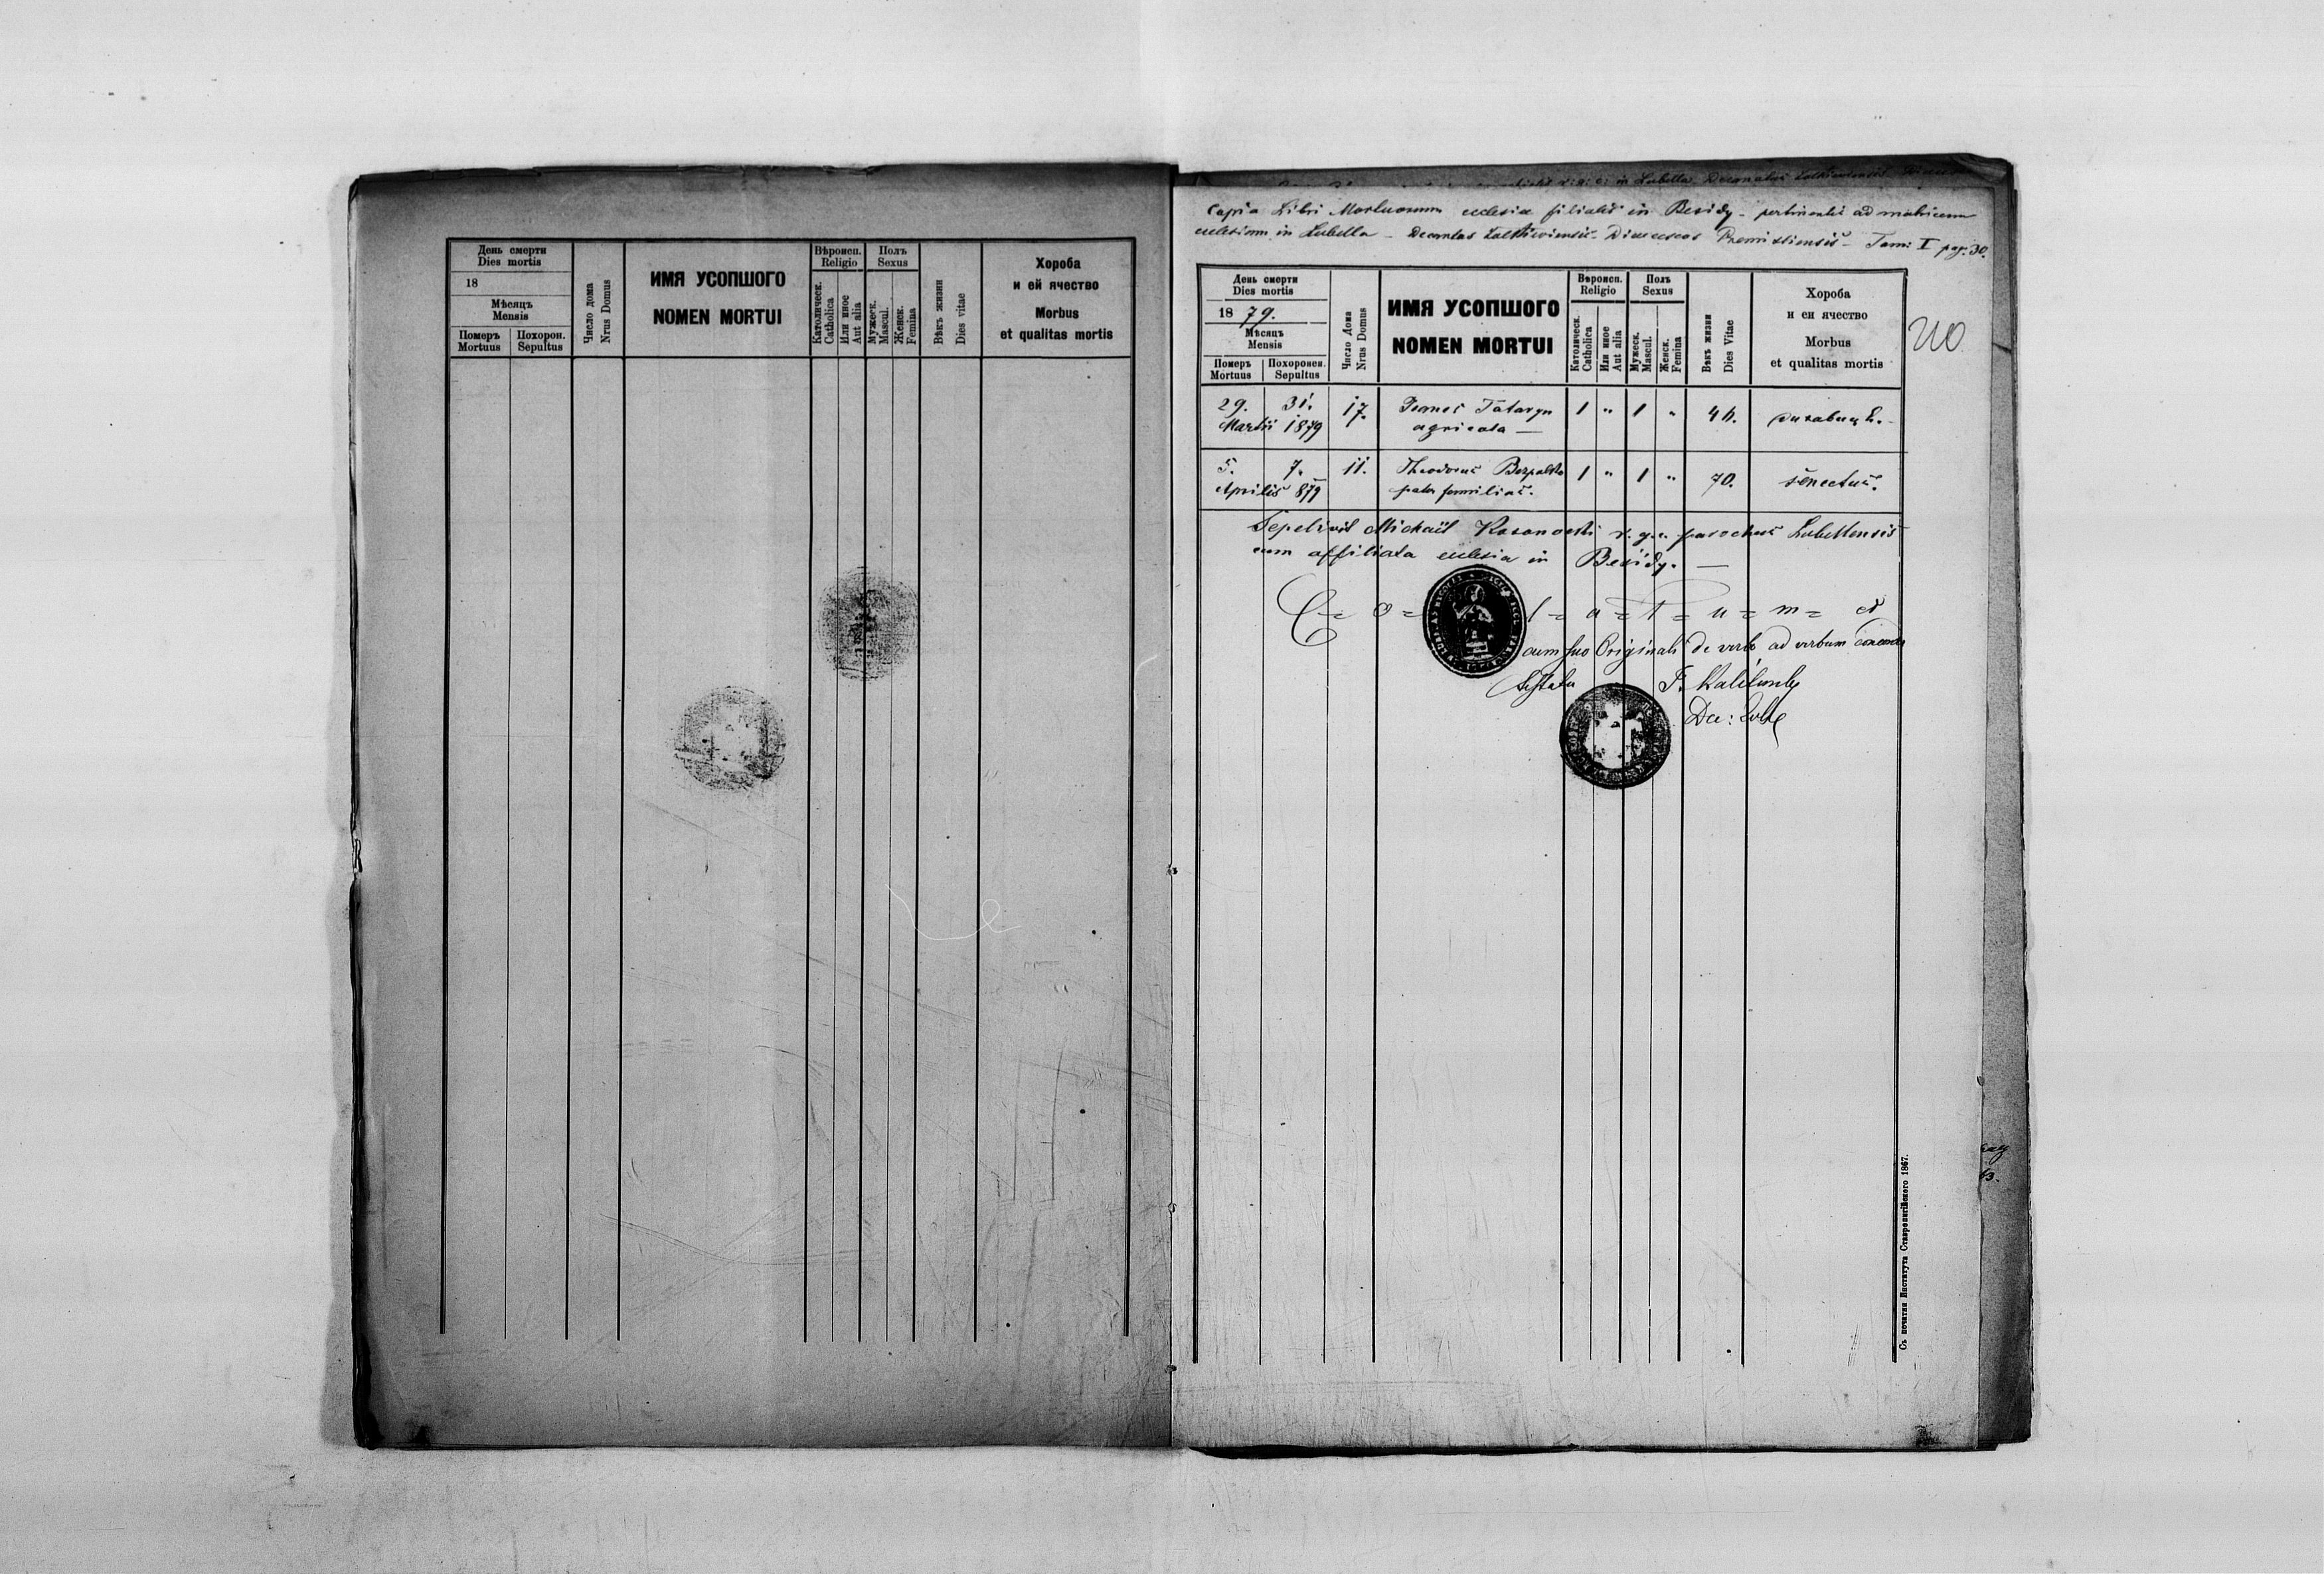 День смерти
Dies mortis
18
Мѣсяцъ
Mensis
Померъ
Mortuus
Похорон.
Sepultus
Число дома
Nrus Domus
ИМЯ УСОПШОГО
NOMEN MORTUI
Вѣроисп.
Religio
Католическ.
Catholica
Или иное
Aut alia
Полъ
Sexus
Мужеск.
Mascul.
Женск.
Femina
Вѣкъ жизни
Dies vitae
Хороба
и ей ячество
Morbus
et qualitas mortis
in Lubella Decanatus
Copia Libri Mortuorum ecclesiae filialis in Besidy - pertinentis ad matricem
ecclesiam in Lubella - Decanatus Diaeceseos Premisliensis - Tom: I pag. 30.
210
День смерти
Dies mortis
1879.
Мѣсяцъ
Mensis
Померъ
Mortuus
Похоронен.
Sepultus
Число Дома
Nrus Domus
ИМЯ УСОПШОГО
NOMEN MORTUI
Вѣроисп.
Religio
Католическ.
Catholica
Или иное
Aut alia
Полъ
Sexus
Мужеск.
Mascul.
Женск.
Femina
Вѣкъ жизни
Dies Vitae
Хороба
и еи ячество
Morbus
et qualitas mortis
29. 31. 17. Tataryn 1 " 1 "
Martii 1879 agricola —
5. 7. 11. Theodorus 1 " 1 " 70. senectus.
Aprilis 879 pater familias.
Sepelivit Michaël r. g. c. parochus Lubellensis
cum affiliata ecclesia in Besidy. —
C = o = l = a = t = u = m = et
cum suo Originali de verbo ad verbum
testatur
Съ печатни Института Ставропигійского 1867.